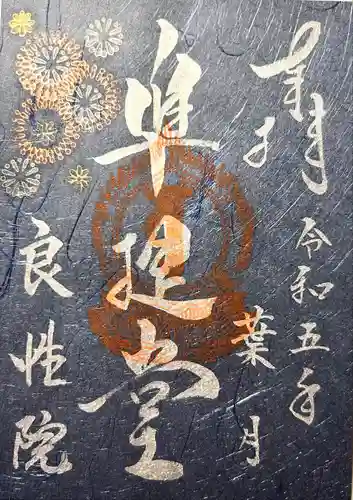 奉拝
令和五年
葉月
準提堂
良性院